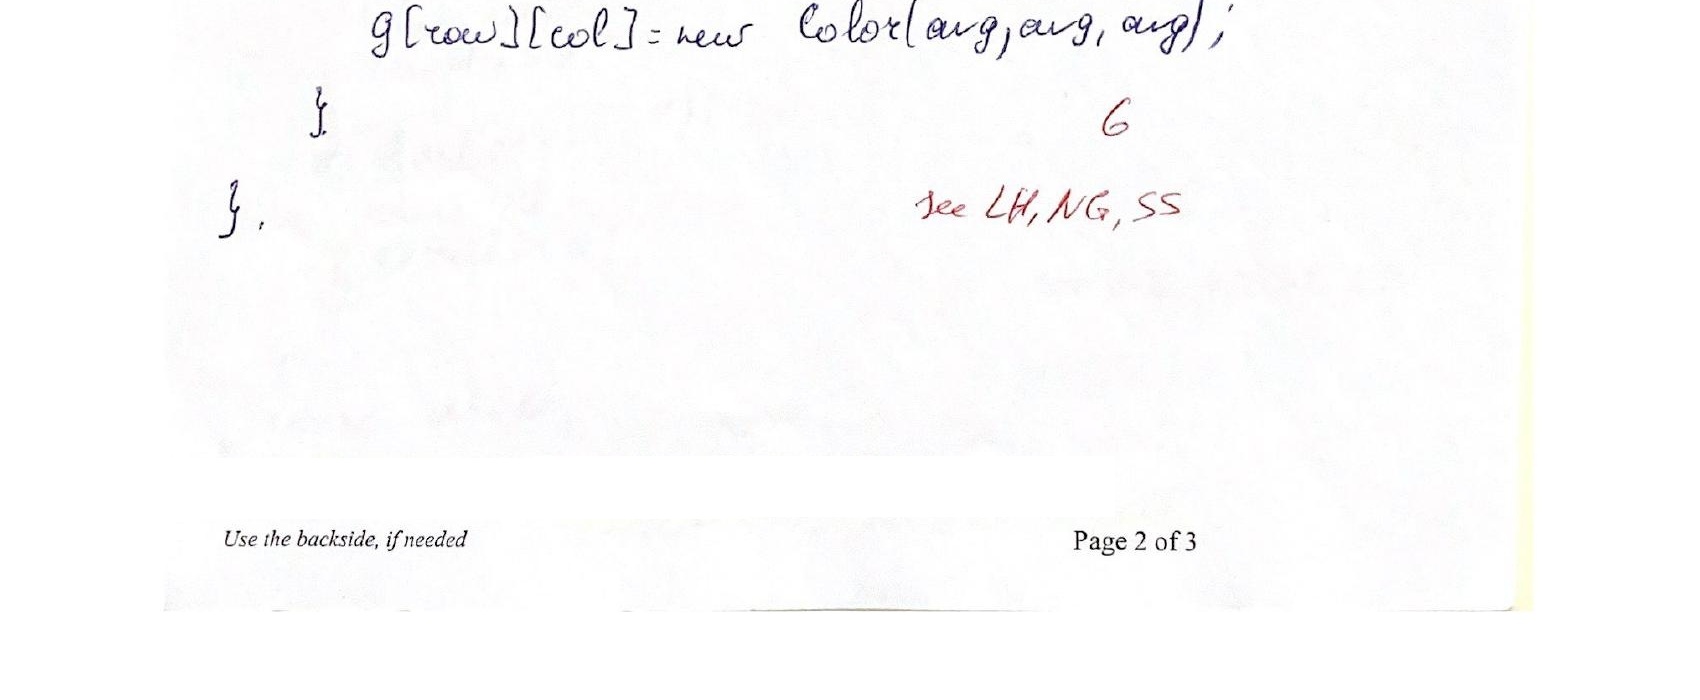 g[row][col]=new Color(avg,avg,avg);
}
6
}.
see LH, NG, SS
Use the backside, if needed
Page 2 of 3